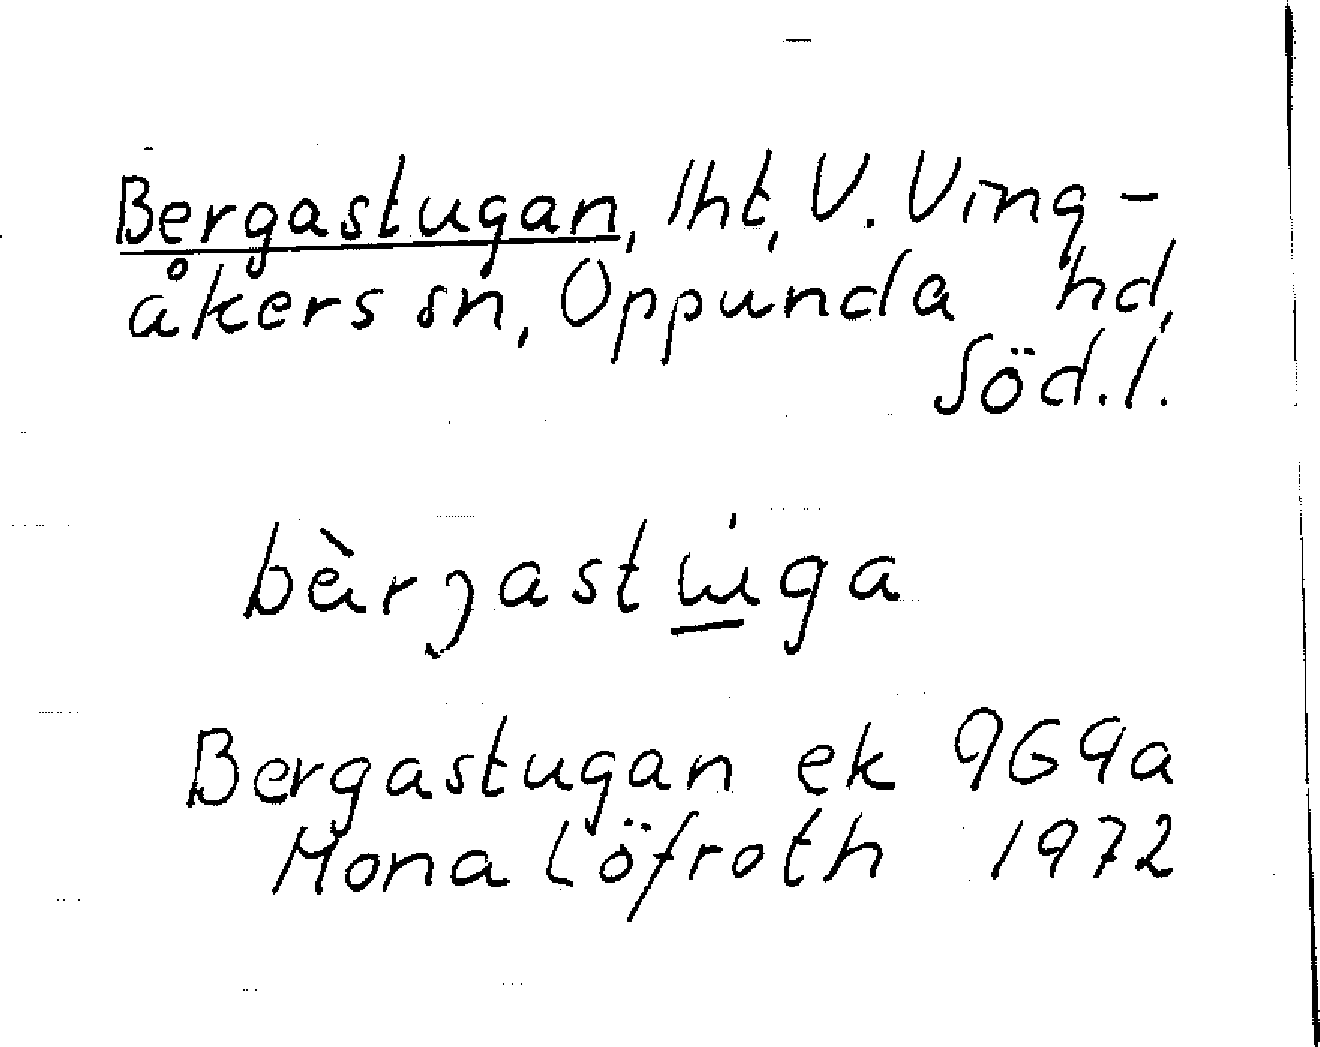 Bergastugan, lht, V. Ving-
åkers sn, Oppunda hd,
Söd.l.
bèrȷastùga
Bergastugan ek 969a
Mona Löfroth 1972